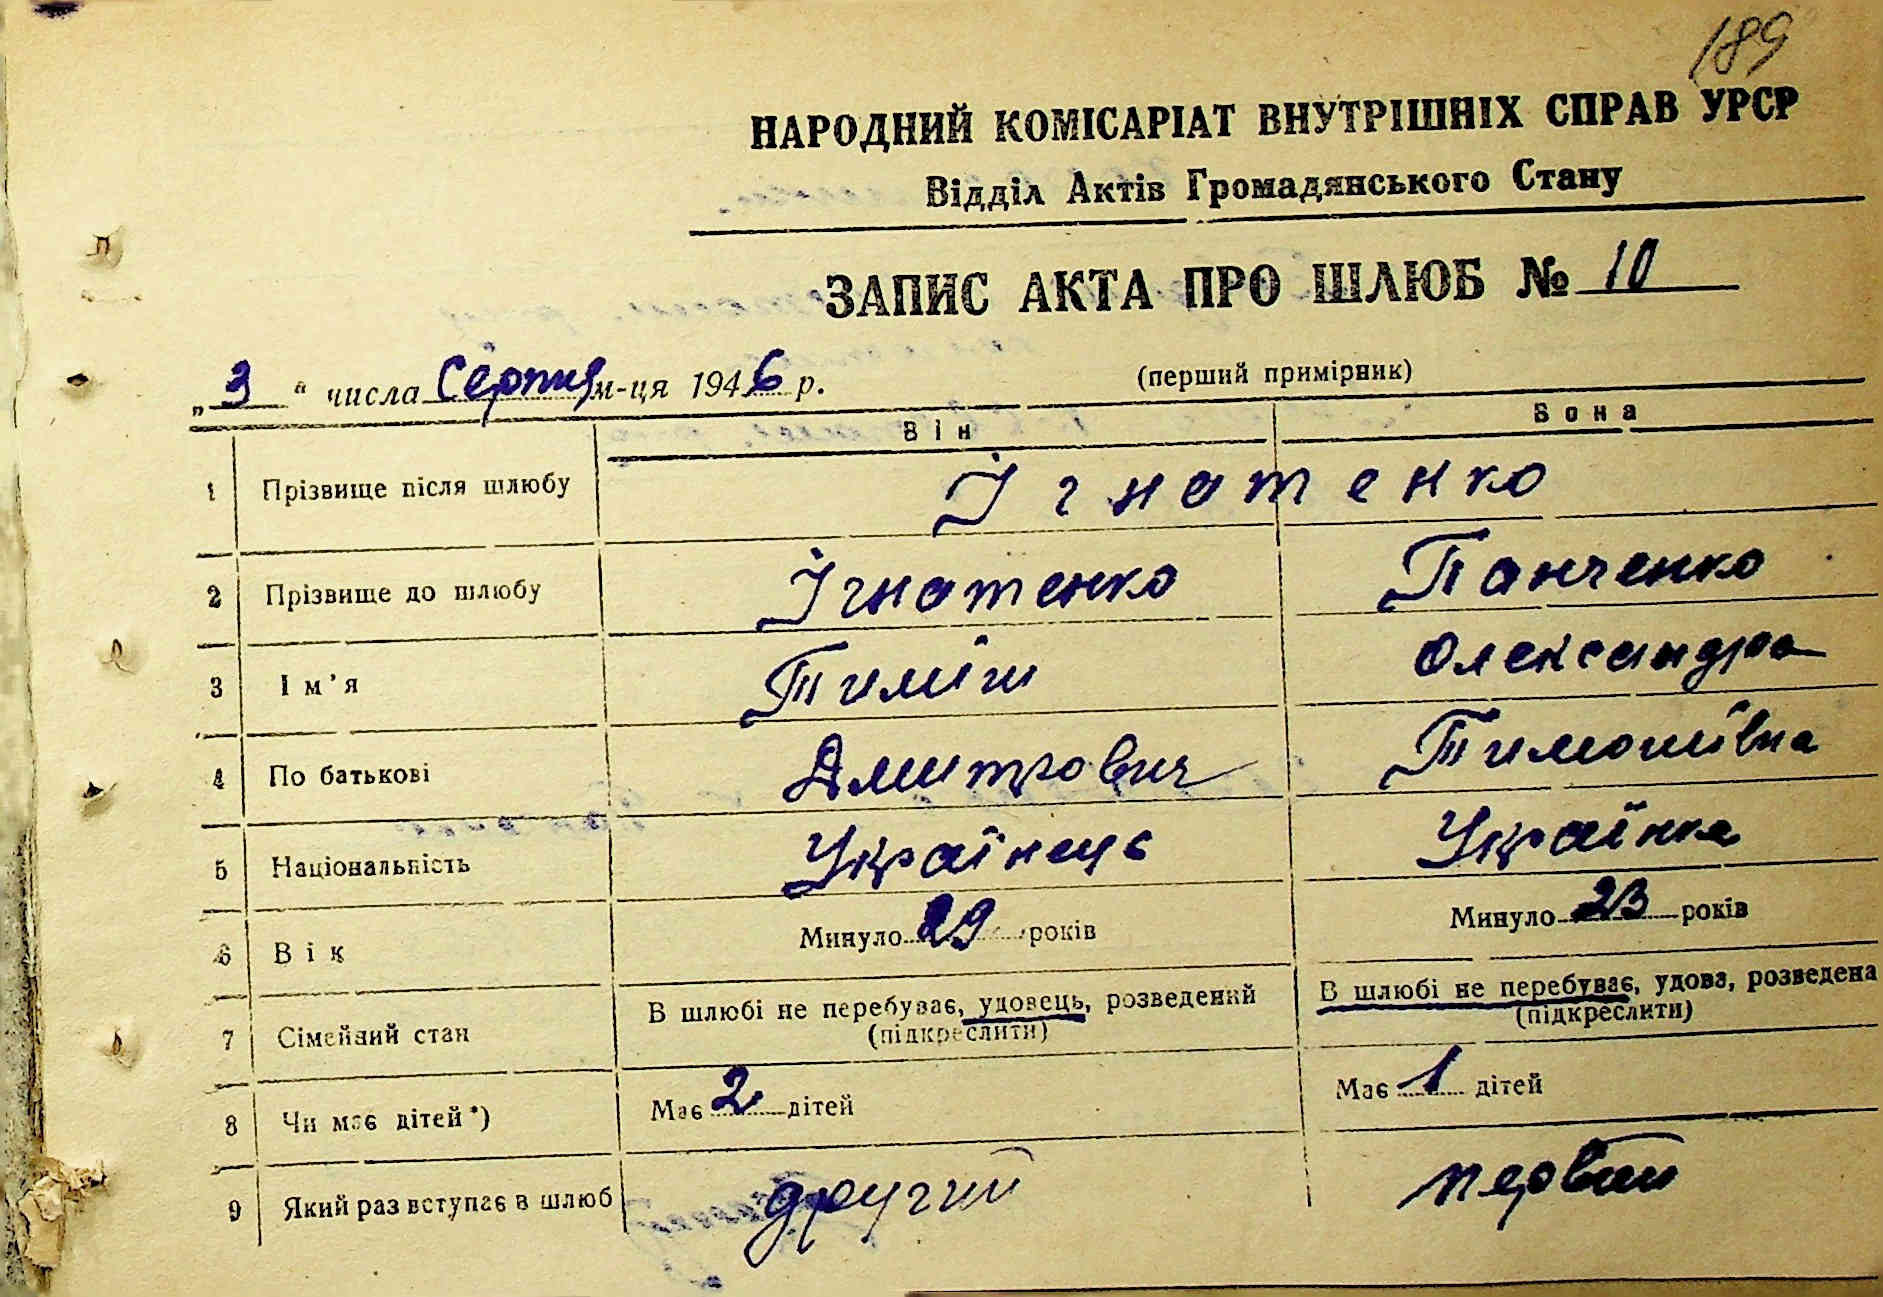 189
НАРОДНИЙ КОМІСАРІАТ ВНУТРІШНІХ СПРАВ УРСР
Відділ Актів Громадянського Стану
ЗАПИС АКТА ПРО ШЛЮБ № 10
„3“ числа Серпня м-ця 1946 р. (перший примірник)
Він Вона
1 Прізвище після шлюбу Ігнатенко
2 Прізвище до шлюбу Ігнатенко Панченко
3 Ім'я Тиміш Олександра
4 По батькові Дмитрович Тимофіївна
5 Національність Українець Українка
6 Вік Минуло 29 років Минуло 23 років
7 Сімейний стан В шлюбі не перебуває, удовець, розведений (підкреслити) В шлюбі не перебуває, удова, розведена (підкреслити)
8 Чи має дітей*) Має 2 дітей Має 1 дітей
9 Який раз вступає в шлюб другий первий